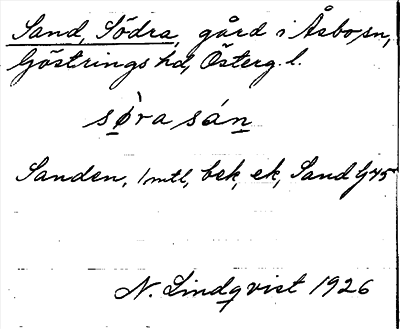 Sand, Södra, gård i Åsbo sn,
Göstrings hd, Österg. l.
sø̀ra sán
Sanden, 1 mtl, bek, ek, Sand G 45
N. Lindqvist 1926